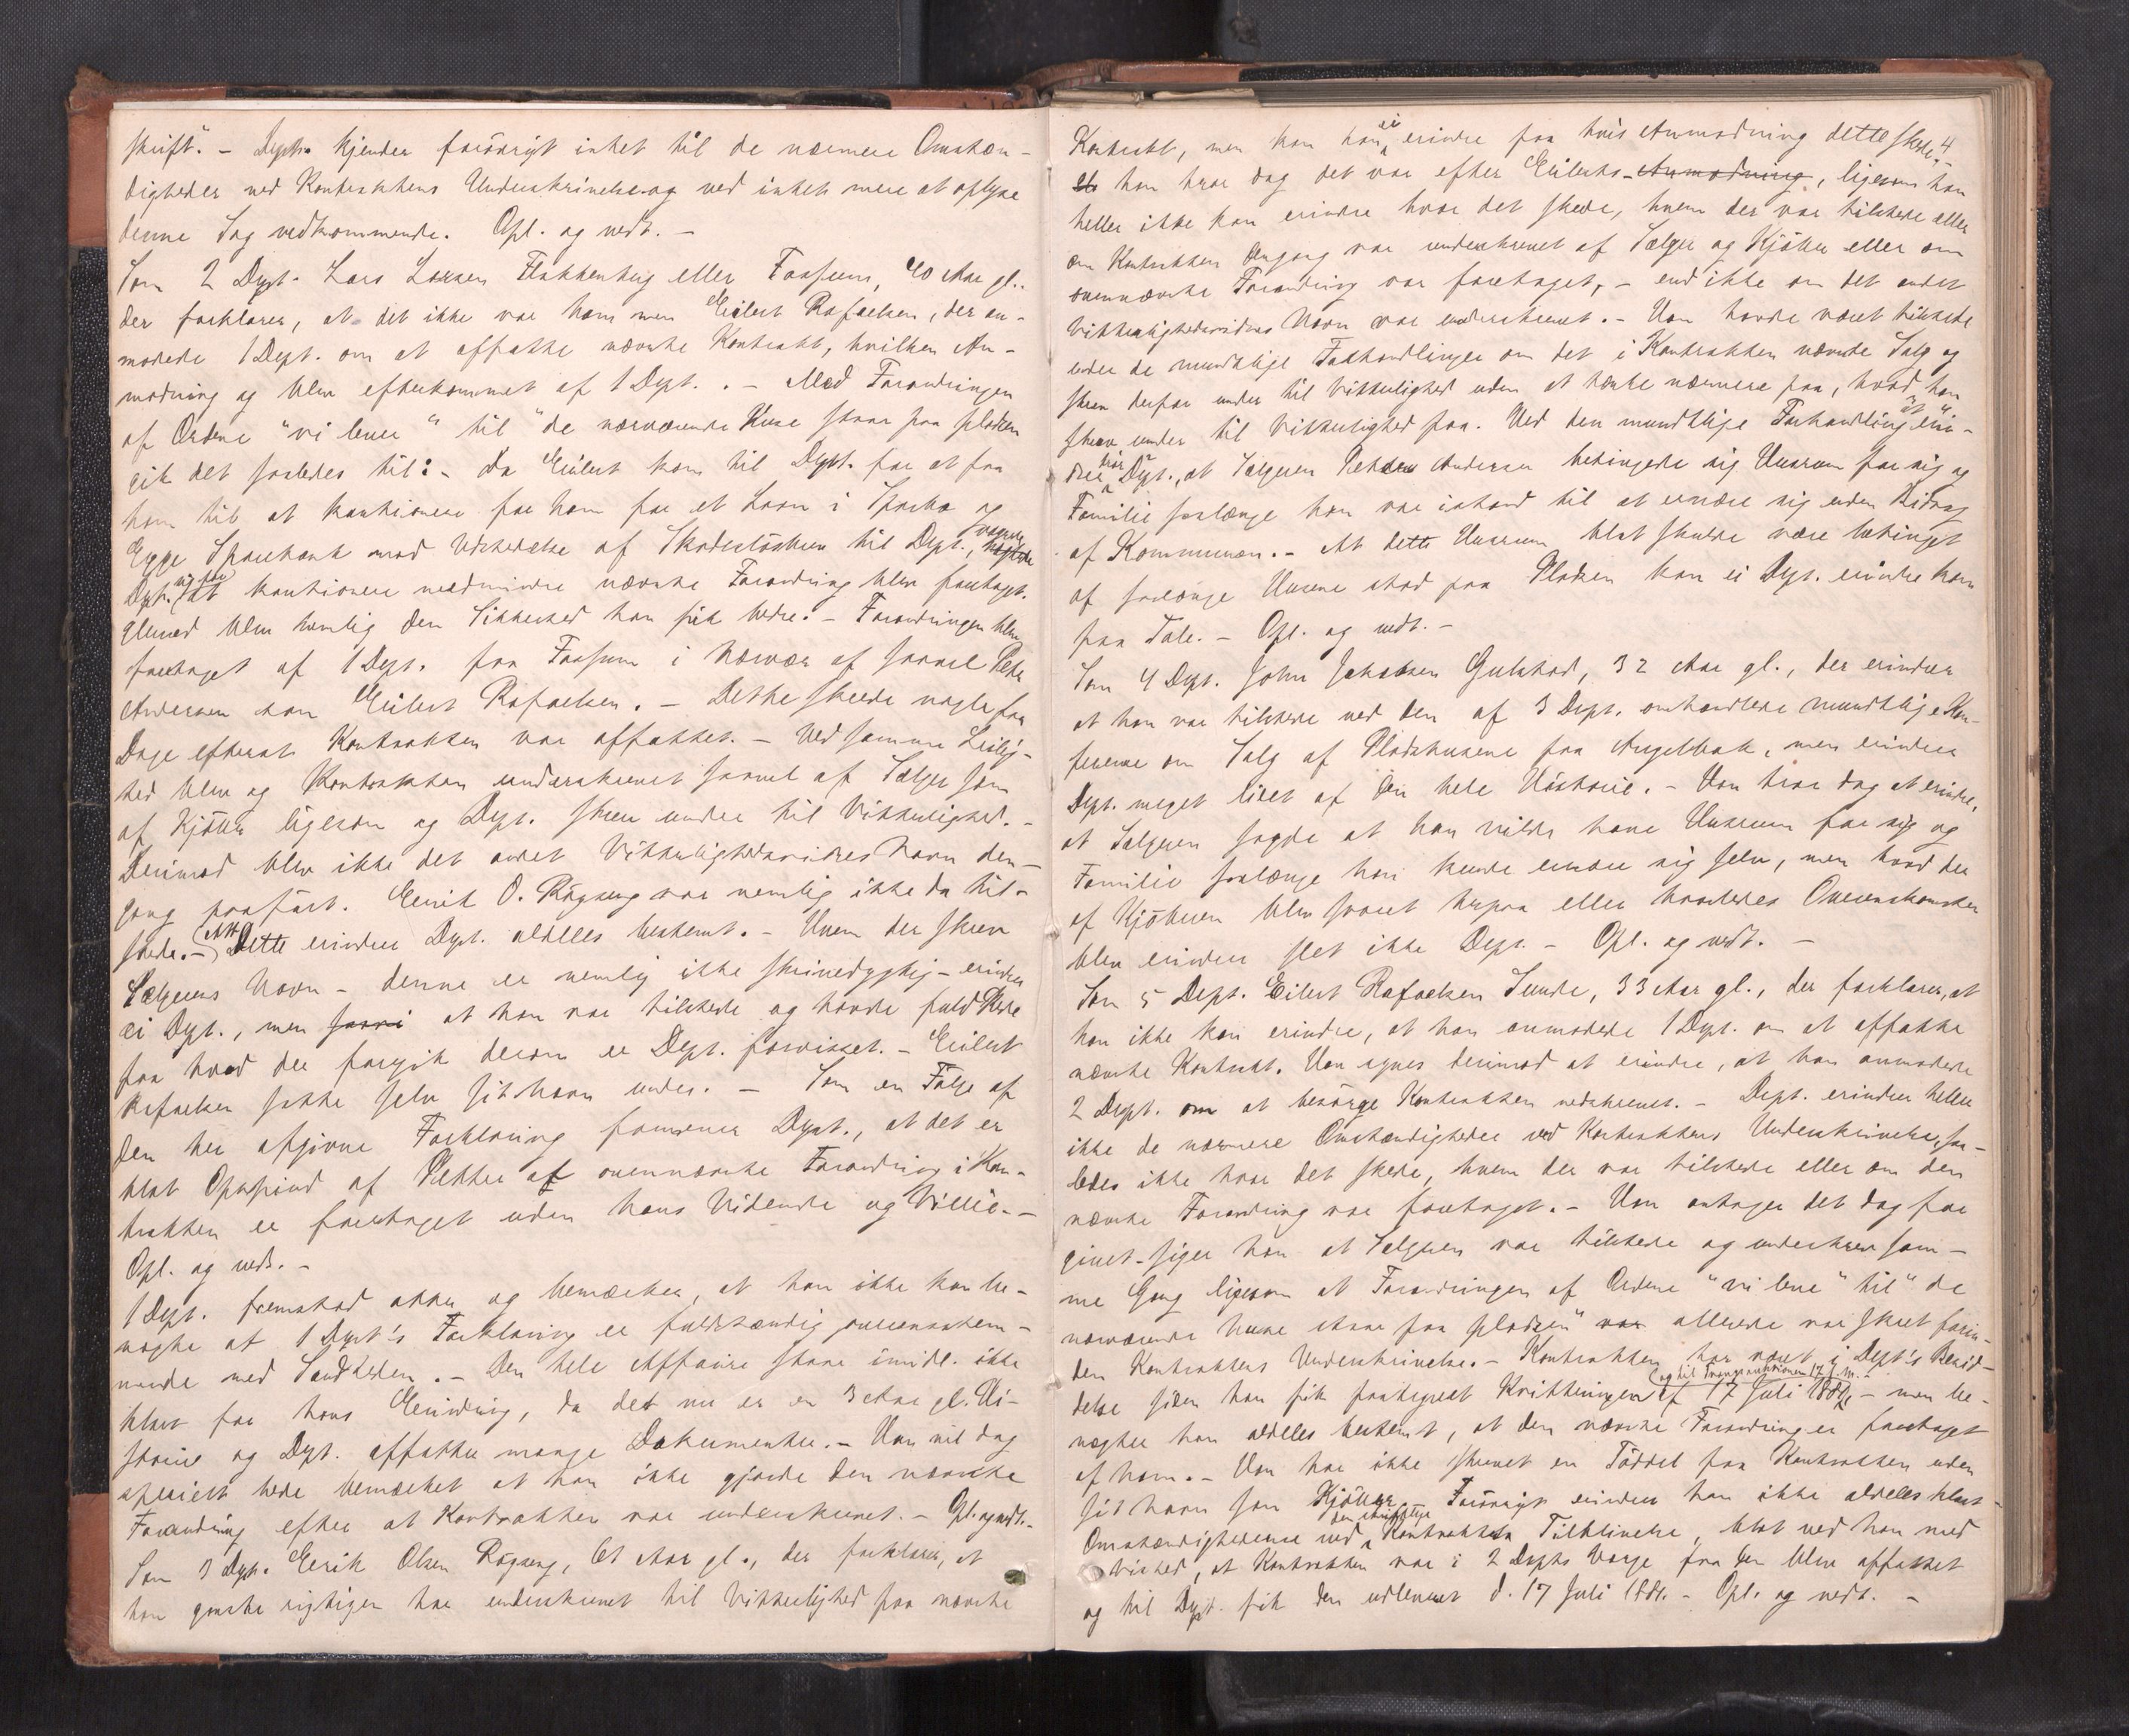 skrift". – Dept. kjender forövrigt intet til de nærmere Omstæn-
digheder ved Kontraktens Underskrivelse og ved intet mere at oplyse
denne Sag vedkommende. Opl. og vedt. –
Som 2 Dept. Lars Larsen Flakkenberg eller Fossum, 40 Aar gl.,
der forklarer, at det ikke var ham men Eilert Rafaelsen, der an-
modede 1 Dept. om at affatte nævnte Kontrakt, hvilken An-
modning og blev efterkommet af 1 Dept. – Med Forandringen
af Ordene "vi lever" til "de nærværende Huse staar paa pladsen
gik det saaledes til: – Da Eilert kom til Dept. for at faa
ham til at kautionere for ham for et Laan i Sparbo og
Egge Sparebank mod Udstedelse af Skadeslösbrev til Dept., vægrede
Dept. sig for at kautionere medmindre nævnte Forandring blev foretaget.
Herved blev nemlig den Sikkerhed han fik bedre. – Forandringen blev
foretaget af 1 Dept. paa Fossum i Nærvær af saavel Peter
Andersen som Eilert Rafaelsen. – Dette skeede nogle faa
Dage efterat Kontrakten var affattet. – Ved samme Leilig-
hed blev og Kontrakten underskrevet saavel af Sælger som
af Kjöber ligesom og Dept. skrev under til Vitterlighed. –
Derimod blev ikke det andet Vitterlighedsvidnes Navn den-
gang paafört. Eerik O. Rögseng var nemlig ikke da til-
stede. – Alt Dette erindrer Dept. aldeles bestemt. – Hvem der skrev
Sælgerens Navn – denne er nemlig ikke skrivedygtig – erindrer
ei Dept., men at han var tilstede og havde fuld Rede
paa hvad der foregik derom er Dept. forvisset. – Eilert
Rafaelsen satte selv sit Navn under. – Som en Fölge af
den her afgivne Forklaring formener Dept., at det er
blot Opspind af Petter at ovennævnte Forandring i Kon-
trakten er foretaget uden hans Vidende og Villie. –
Opl. og vedt. –
1 Dept. fremstod atter og bemærker, at han ikke kan be-
nægte at Dept's Forklaring er fuldstændig overensstem-
mende med Sandheden. – Den hele Affaire staar imidl. ikke
klart for hans Erindring, da det nu er en 3 Aar gl. Hi-
storie og Dept. affatter mange Dokumenter. – Han vil dog
specielt have bemærket at han ikke gjorde den nævnte
Forandring efter at Kontrakten var underskrevet. – Opl. og vedt. –
Som 3 Dept. Eerik Olsen Rögseng, 61 Aar gl., der forklarer, at
han ganske rigtigen har underskrevet til Vitterlighed paa nævnte
4
Kontrakt, men kan han ei erindre paa hvis Anmodning dette skede. –
han tror dog det var efter Eilerts Anmodning, ligesom han
heller ikke kan erindre hvor det skede, hvem der var tilstede eller
om Kontrakten dengang var underskrevet af Sælger og Kjöber eller om
ovennævnte Forandring var foretaget, – end ikke om det andet
Vitterlighedsvidnes Navn var underskrevet. – Han havde været tilstede
under de mundtlige Forhandlinger om det i Kontrakten nævnte Salg og
skrev derfor under til Vitterlighed uden at tænke nærmere paa, hvad han
skrev under til Vitterlighed paa. Ved den mundtlige Forhandling erin-
drer tror Dept., at Sælgeren Petter Andersen betingede sig Husrum for sig og
Familie saalænge han var istand til at ernære sig uden Bidrag
af Kommunen. – At dette Husrum blot skulde være betinget
af saalænge Husene stod paa Pladsen kan ei Dept. erindre kom
paa Tale. – Opl. og vedt. –
Som 4 Dept. John Jakobsen Gulstad, 32 Aar gl., der erindrer
at han var tilstede ved den af 3 Dept. omhandlede mundtlige Kon-
ference om Salg af Pladshusene paa Angelbak, men erindrer
Dept. meget lidet af den hele Historie. – Han tror dog at erindre,
at Sælgeren sagde at han vilde have Husrum for sig og
Familie saalænge han kunde ernære sig selv, men hvad der
af Kjöberen blev svaret herpaa eller hvorledes Overenskomsten
blev erindrer slet ikke Dept. – Opl. og vedt. –
Som 5 Dept. Eilert Rafaelsen Sunde, 33 Aar gl., der forklarer, at
han ikke kan erindre, at han anmodede 1 Dept. om at affatte
nævnte Kontrakt. Han synes derimod at erindre, at han anmodede
2 Dept. om at besörge Kontrakten nedskrevet. – Dept. erindrer heller
ikke de nærmere Omstændigheder ved Kontraktens Underskrivelse, saa-
ledes ikke hvor det skede, hvem der var tilstede eller om den
nævnte Forandring var foretaget. – Han antager det dog for
givet – siger han at Sælgeren var tilstede og underskrev sam-
me Gang ligesom at Forandringen af Ordene "vi leve" til "de
nærværende huse staar paa pladsen" allerede var skeet forin-
den Kontraktens Underskrivelse. – Kontrakten har været i Dept's Besid-
delse siden han fik paategnet Kvitteringen af 17 Juli 1881, og til 17 d. M. – men be-
nægter han aldeles bestemt, at den nævnte Forandring er foretaget
af ham. – Han har ikke skrevet en Töddel paa Kontrakten uden
sit Navn som Kjöber. – Forövrigt erindrer han ikke aldeles klart
Omstændighederne ved den skriftlige Kontrakts Tilblivelse, blot ved han med
Vished, at Kontrakten var i 2 Depts Værge fra den blev affattet
og til Dept. fik den udleveret d. 17 Juli 1881. – Opl. og vedt. –